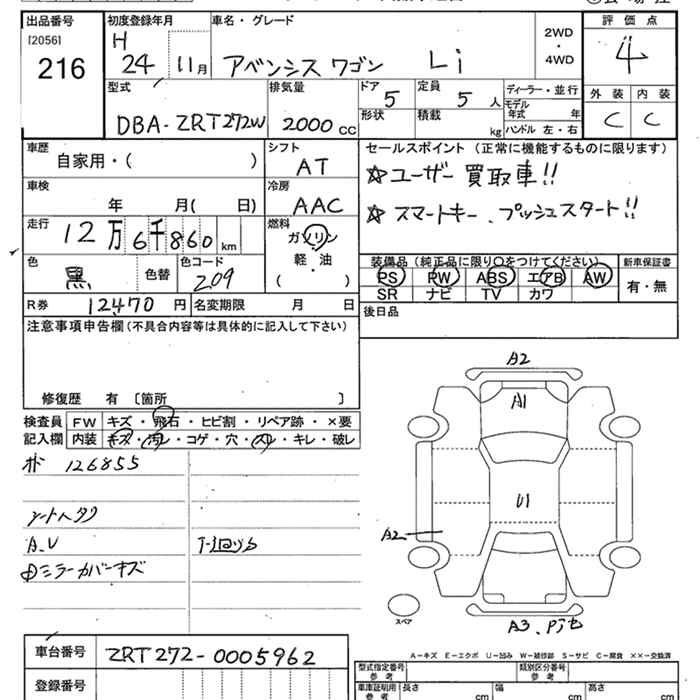 出品番号 初度登録年月 車名・グレード 2WD ・ 4WD 評価点
[2056] 216 H 24 11月 アベンシス ワゴン Li 4
型式 排気量 ドア 定員 ディーラー・並行 外装 内装
DBA-ZRT272W 2000cc 5 5人 モデル年式 年 C C
形状 積載 kg ハンドル 左・右
車歴 シフト セールスポイント(正常に機能するものに限ります)
自家用・( ) AT ☆ユーザー買取車!!
車検 冷房
年 月( 日) AAC ☆スマートキー、プッシュスタート!!
走行 燃料
12万6千860km ガソリン
軽・油
( )
色 色替 色コード 装備品(純正品に限り○をつけてください) 新車保証書
黒 209 PS PW ABS エアB AW 有・無
SR ナビ TV カワ
R券 12470円 名変期限 月 日 後日品
注意事項申告欄(不具合内容等は具体的に記入して下さい)
修復歴 有 〔箇所 〕
検査員 FW キズ・飛石・ヒビ割・リペア跡・×要
記入欄 内装 キズ・汚レ・コゲ・穴・スレ・キレ・破レ
A2
A1
ホ 126855
U1
シートヘタク
A2
A.U
Dミラーカバーキズ
スペア
A3.
車台番号 ZRT272-0005962
登録番号
A-キズ E-エクボ U-凹み W-補修跡 S-サビ C-腐食 XX-交換済
型式指定番号 参考 類別区分番号 参考
車庫証明用 参考 長さ cm 幅 cm 高さ cm